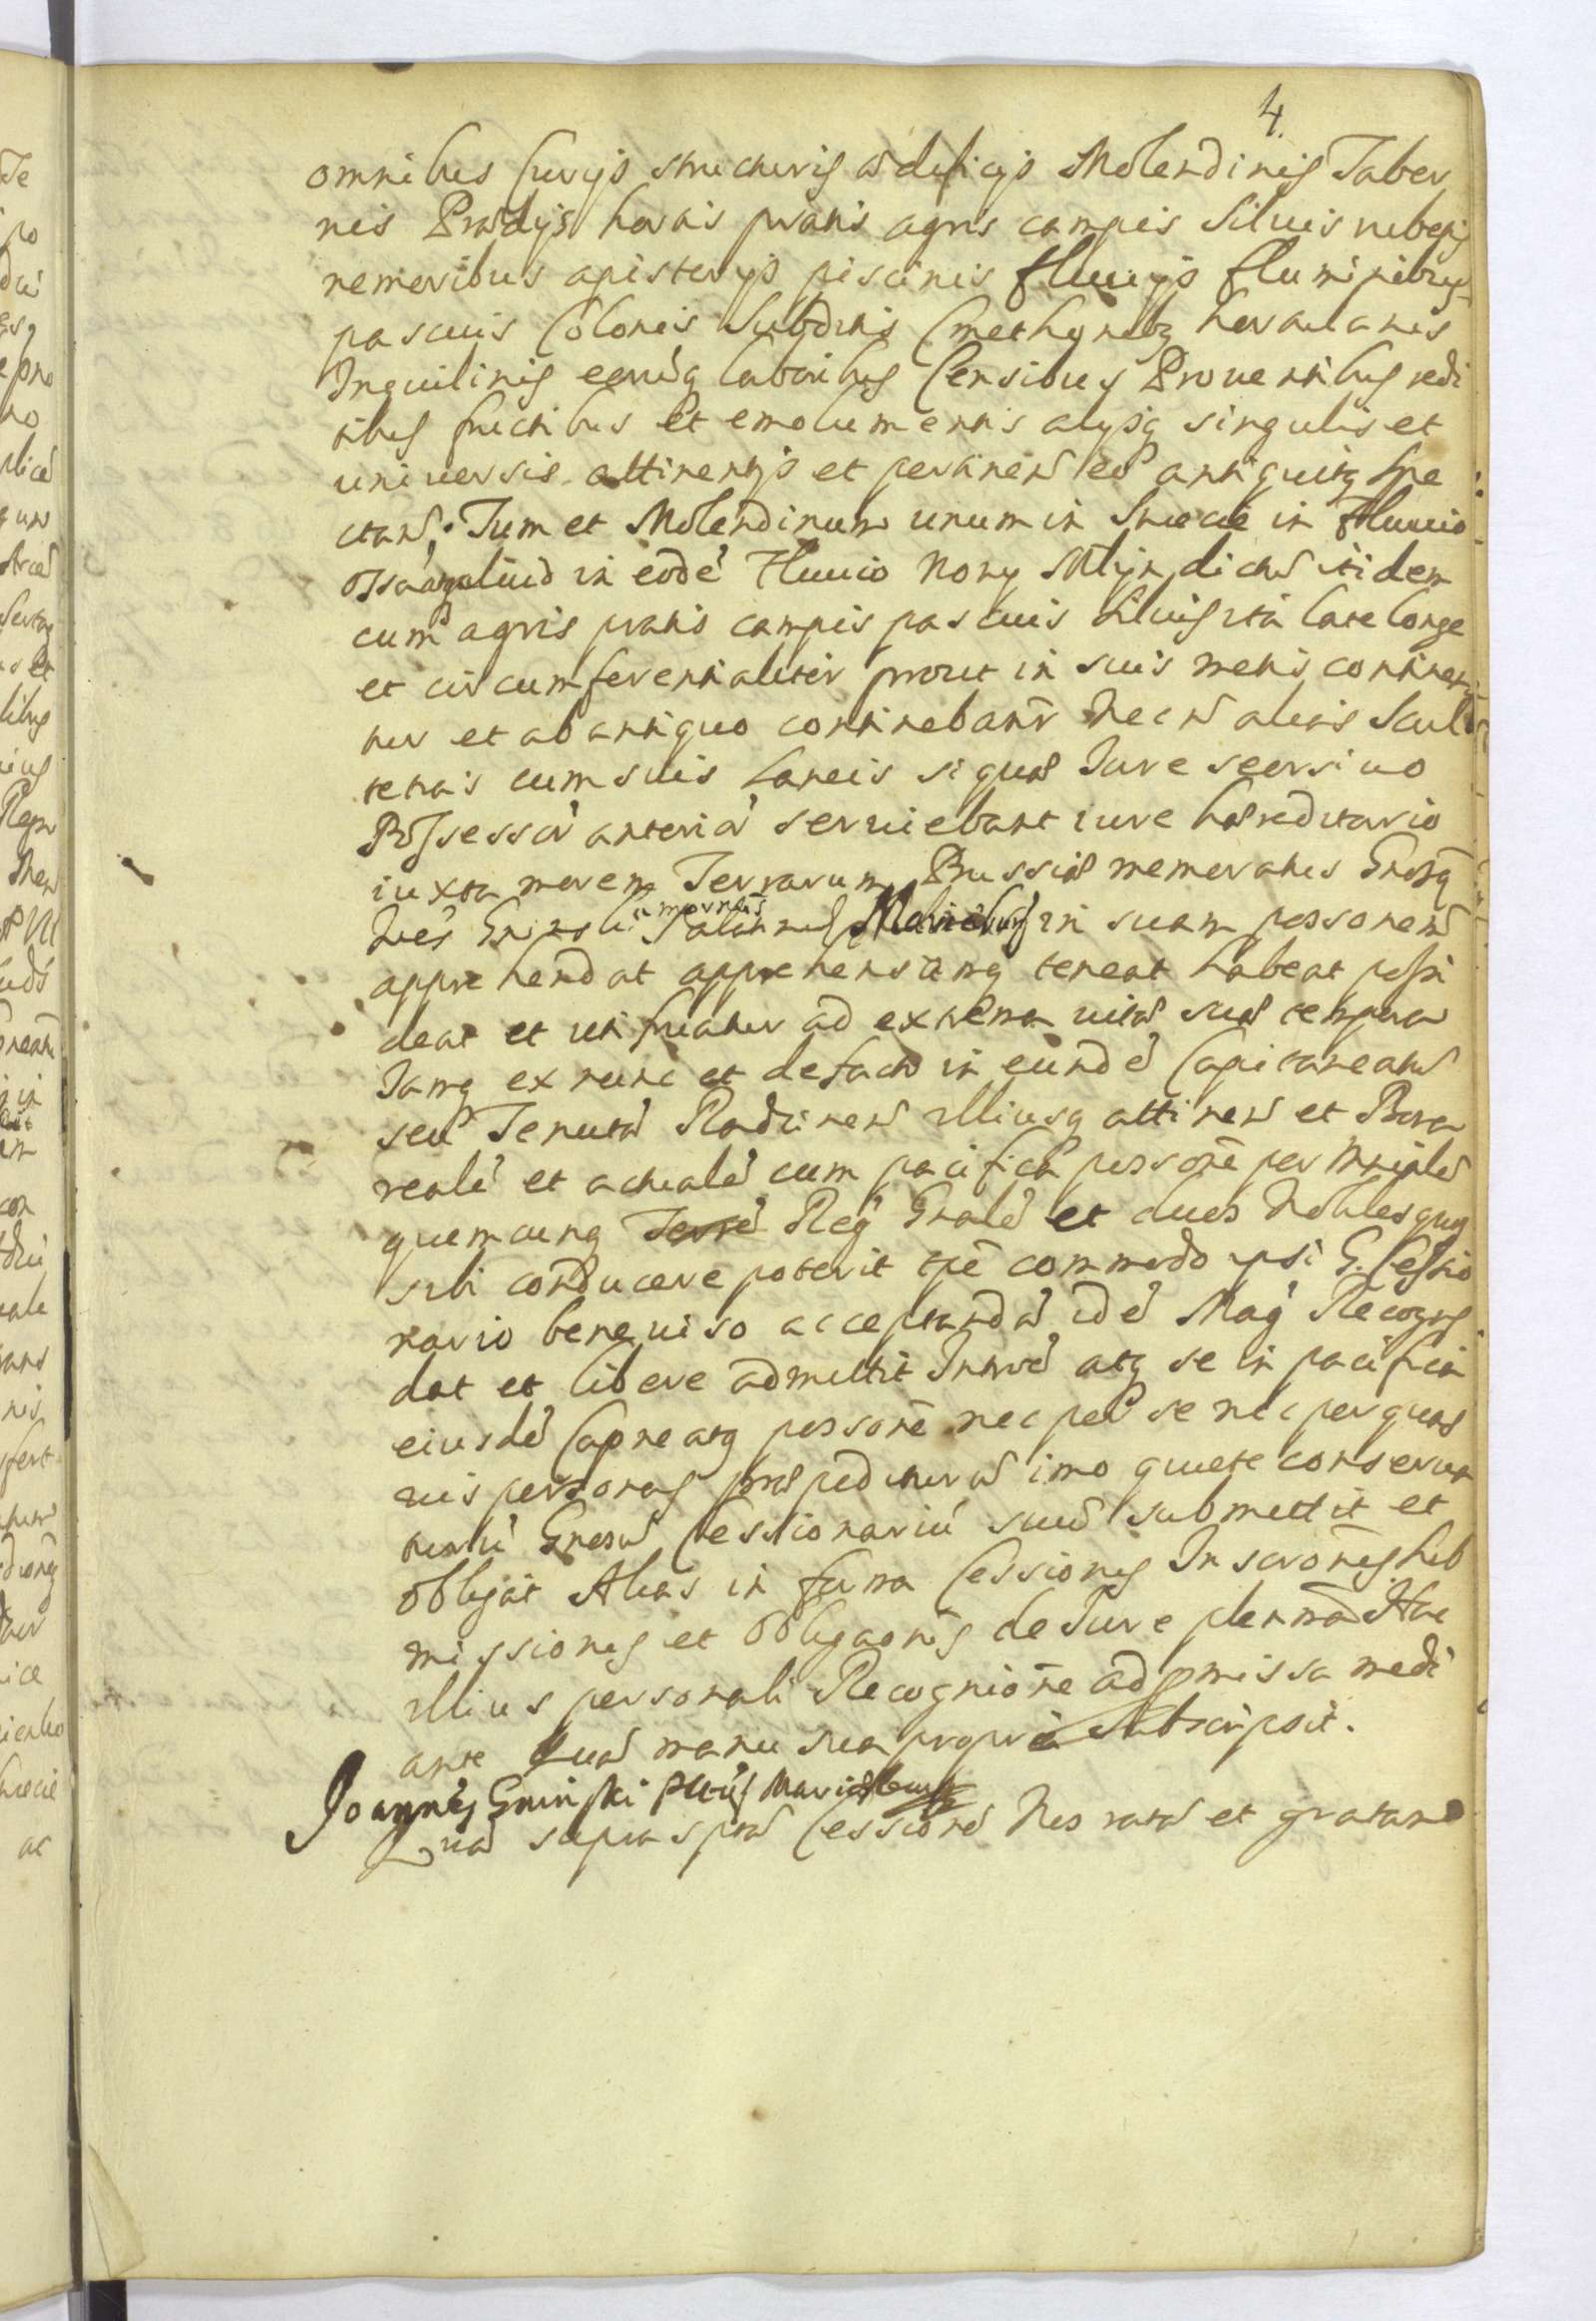 4.
omnibus Curijs structuris ædificijs Molendinis Taber
nis Prædijs hortis pratis agris campis Siluis rubetis
nemoribus apisterijs piscinis fluuijs fluminibus
pascuis Colonis Subditis Cmethonibq hortulanis
Inquilinis eorūq laboribus Censibus Prouentibus redi
tibus fructibus et emolumentis alijsq singulis et
uniuersis attinentijs et pertinen eo antiquitq spe
ctan. Tum et Molendinum unum in in Fluuio
Ossa aliud in eodē Fluuio Nowy Mlyn dictū itidem
cum agris pratis campis pascuis siluis ita late longe
et circumferentialiter prout in suis metis continen
tur et ab antiquo continebant Necnō alias Scul
tetias cum suis Laneis siquæ Iure seorsiuo
Possessori anteriori seruiebant iure hæreditario
iuxta morem Terrarum Prussiæ memoratus Gnosq
Ioēs Gninski Palatinus Mariæburg in suam possonem
apprehendat apprehensamq teneat habeat possi
deat et utifruatur ad extrema uitæ suæ tempora
Iamq ex nunc et de facto in eundē Capitaneatū
seu Tenutā Radzinen illiusq attinen et Bona
realē et actualē cum pacifica possonē per Mnialē
quemcunq Regī Gnalē et duos Nobiles quos
sibi conducere poterit tpē commodo ipsi G. Cessio
nario beneuiso acceptandā idē Mag Recogns
dat et libere admittit Intromē atq se in pacifica
eiusdē Capneatq possonē nec per se nec per quas
uis personas præpediturū imo quiete conserua
turū Gnosū Cessionariū suū submittit et
obligat Alias in forma Cessionis Inscronis sub
missionis et obligaonis de Iure plenma Hac
illius personali Recognione ad præmissa medi
ante quā manu sua propria Subscripsit.
Joannes Gninski Pltūs Mariæburg
Quā suprascptā Cessionē Nos ratā et gratam